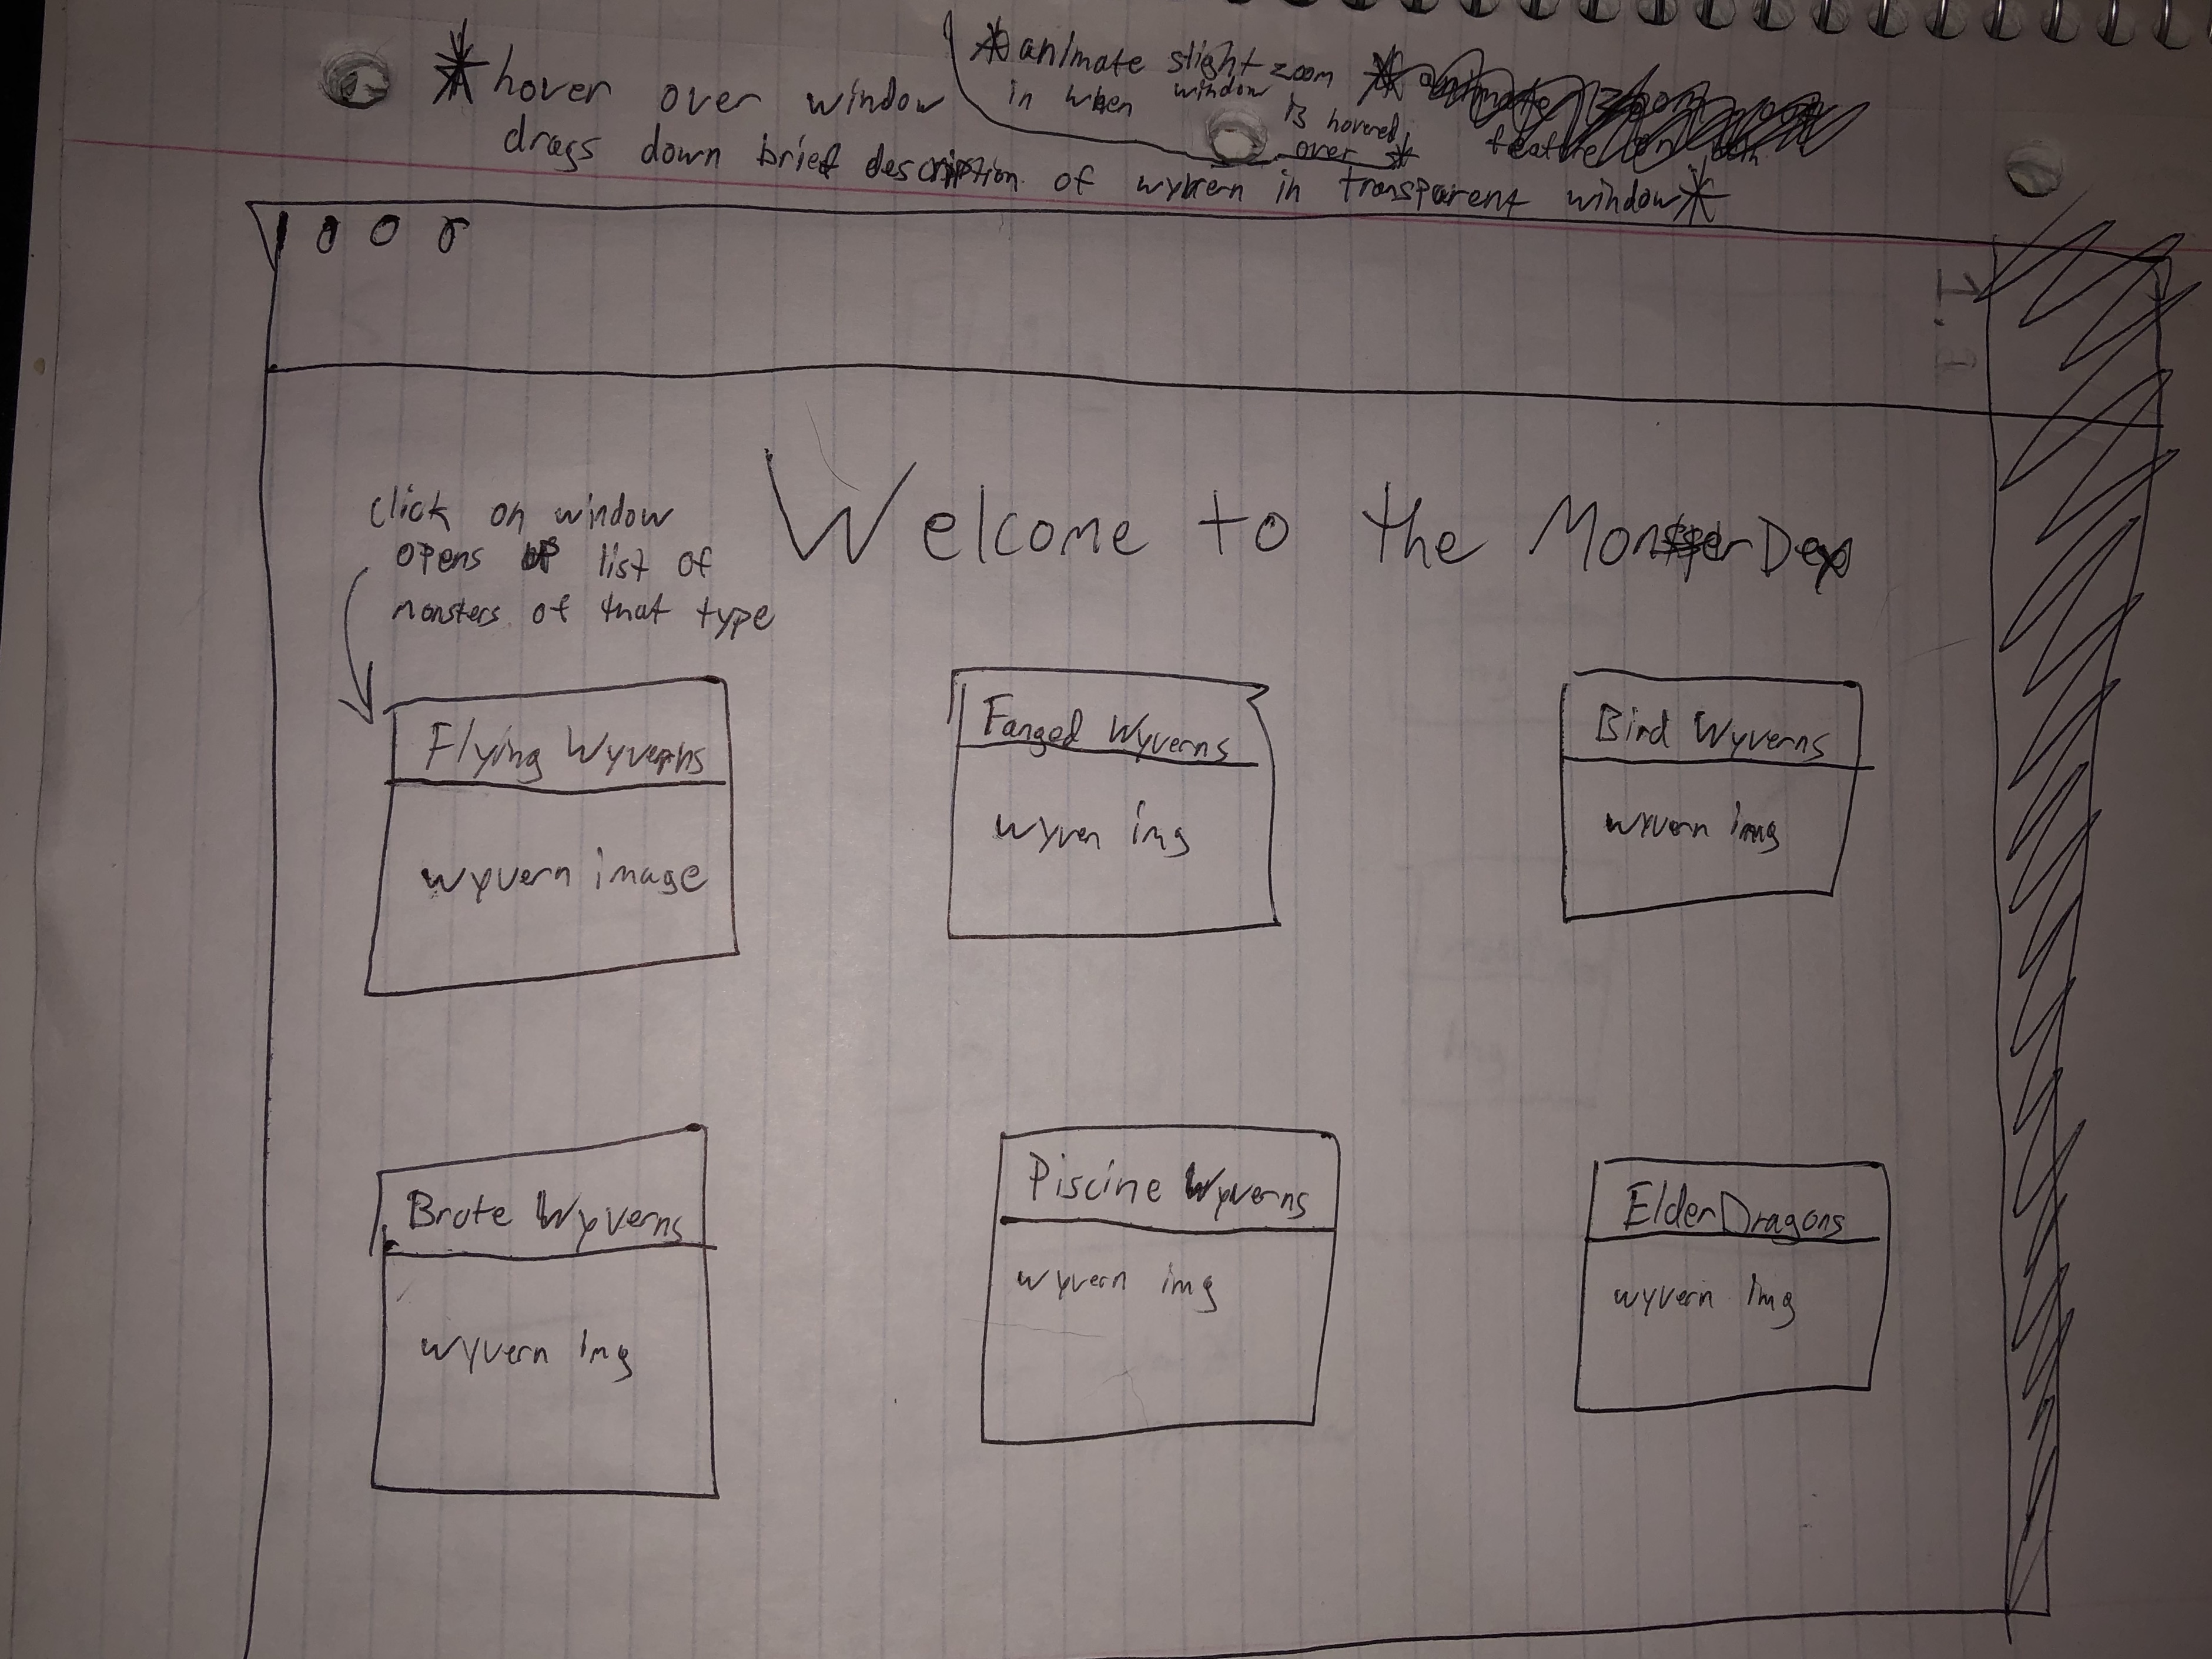 *hover over window
drags down brief description of wyvern in transparent window*
*animate slight zoom
in when window
is hovered
over *
feature on
Welcome to the MonsterDex
click on window
opens up list of
monsters of that type
Flying Wyverns
wyvern image
Fanged Wyverns
wyven img
Bird Wyverns
wyvern img
Brute Wyverns
wyvern img
Piscine Wyverns
wyvern img
Elder Dragons
wyvern img